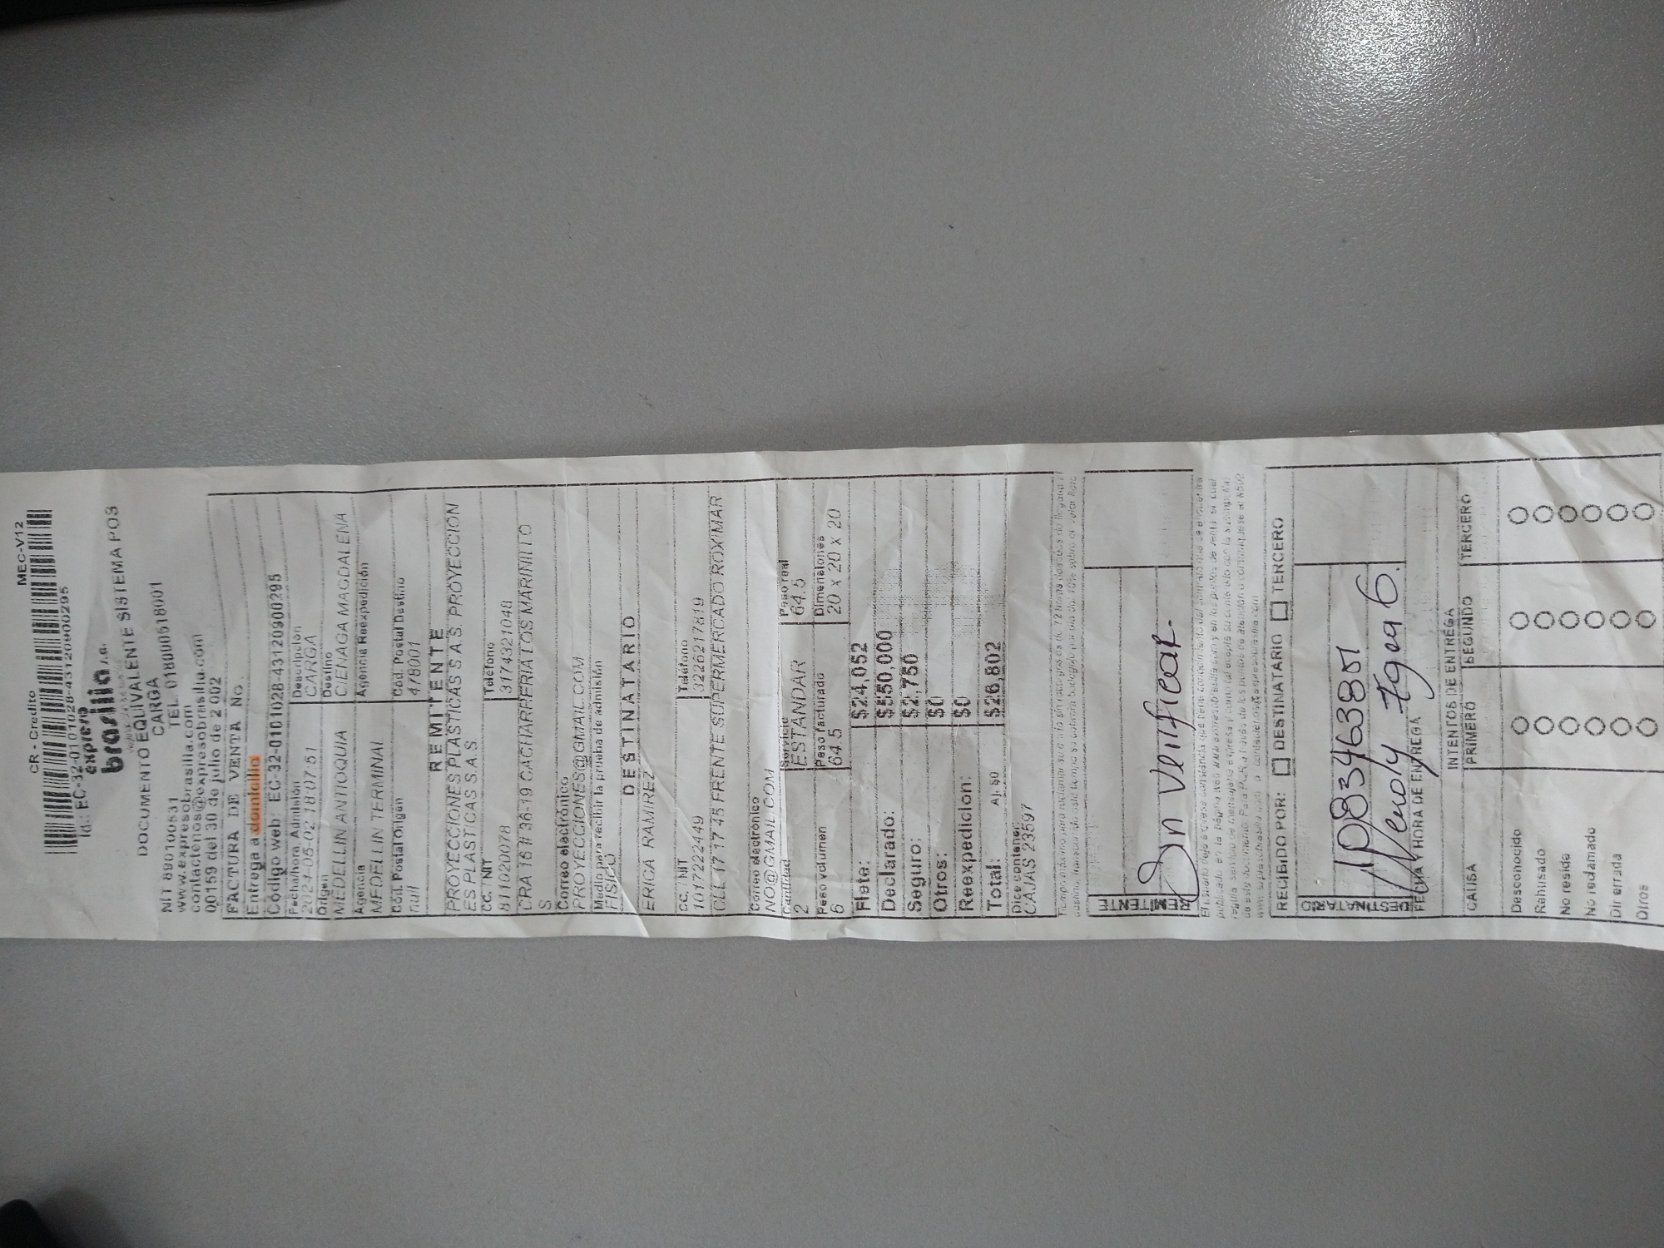 CR - Credito MEC-V12
Id.: EC-32-0101028-43120900295
expreso
brasilia s.a.
DOCUMENTO EQUIVALENTE SISTEMA POS
CARGA
NIT 890100531 TEL. 018000518001
www.expresobrasilia.com
contactenos@expresobrasilia.com
00159 del 30 de julio de 2002
FACTURA DE VENTA No.
Entrega a domicilio
Código web: EC-32-0101028-43120900295
Fecha/hora Admisión Descripción
2024-08-02 18:07:51 CARGA
Origen Destino
MEDELLIN ANTIOQUIA CIENAGA MAGDALENA
Agencia Agencia Reexpedición
MEDELLIN TERMINAL
Cód. Postal Origen Cód. Postal Destino
null 478001
REMITENTE
PROYECCIONES PLASTICAS S.A.S. PROYECCION
ES PLASTICAS S.A.S.
CC. / NIT Teléfono
811020078 3174321048
CRA 16 # 36-19 CACHARRERIATOS MARINILLO
S
Correo electrónico
PROYECCIONES@GMAIL.COM
Medio para recibir la prueba de admisión
FISICO
DESTINATARIO
ERICA RAMIREZ
CC. / NIT Teléfono
1017222449 3226217819
CLL 17 17 45 FRENTE SUPERMERCADO ROXIMAR
Correo electrónico
NO@GMAIL.COM
Cantidad Servicio Peso real
2 ESTANDAR 64.5
Peso volumen Peso facturado Dimensiones
6 64.5 20 x 20 x 20
Flete: $24,052
Declarado: $550,000
Seguro: $2,750
Otros: $0
Reexpedicion: $0
Total: Aj. $0 $26,802
Dice contener:
CAJAS 23597
REMITENTE
Sin Verificar.
RECIBIDO POR: DESTINATARIO TERCERO
DESTINATARIO
FECHA Y HORA DE ENTREGA
INTENTOS DE ENTREGA
CAUSA PRIMERO SEGUNDO TERCERO
Desconocido
Rehusado
No reside
No reclamado
Dir errada
Otros